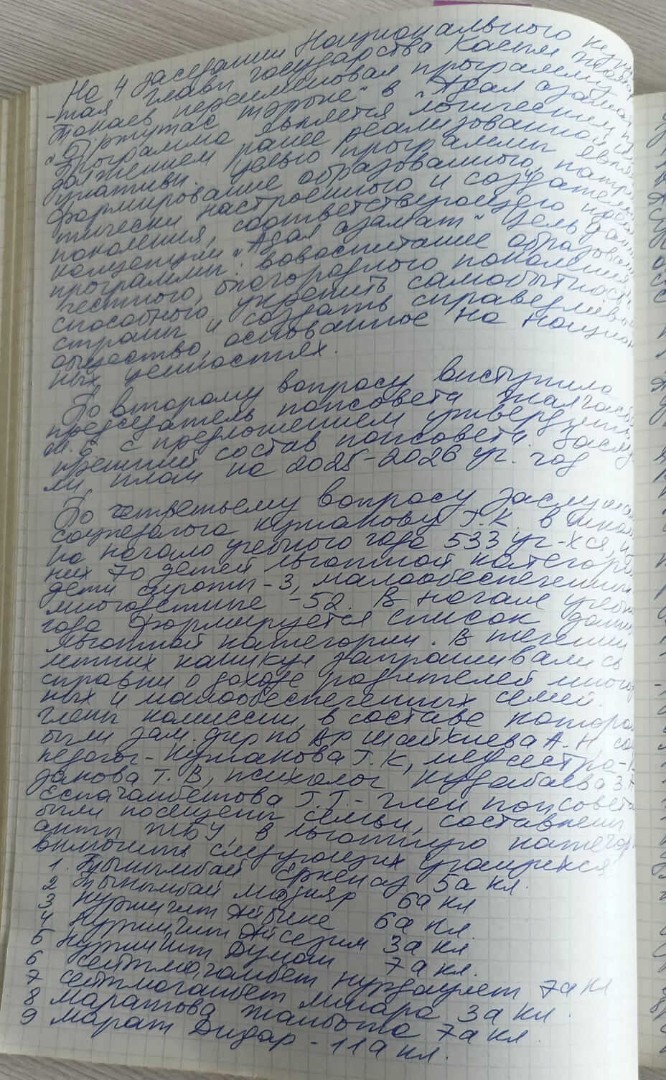 На 4 заседании Национального
-тая глава государства Касым
Токаев переименовал программу
"Біртұтас тәрбие" в "Адал азамат
Программа является логическим
должением ранее реализованной
Целью программы
формирование образованного патр
тически настроенного и созидател
поколения, соответствующего
концепции "Адал азамат". Цель
программы: вовоспитание образован
честного, благородного поколения
способного укрепить самобытнос
страны и создать справедливо
общество, основанное на национ
ных ценностях.
По второму вопросу выступила
председатель попсовета
с предложением утвердить
прежний состав попсовета. Заслу
ли план на 2025-2026 уч. год
По четвертьему вопросу заслуша
соцпедагога Кумакову Г.К. В школе
на начало учебного года 533 уч-хся, и
них 70 детей льготной категори
дети сироты-3, малообеспеченны
многодетные -52. В начале учебн
года формируется список детей
льготной категории. В течении
летних каникул запрашивались
справки о доходе родителей много
ных и малообеспеченных семей
члены комиссии, в составе которо
были зам. дир по ВР Шайкиева А.Н, соц
педагог- Кумакова Г.К, медсестра-
Т.В, психолог
Г.Т- член попсовета
были посещены семьи, составлены
акты ЖБУ, в льготную категор
включить следующих учащихся
1. Еркеназ 5а кл.
2 6а кл
3 Нуржигит 6а кл.
4 Нуржигит 3а кл.
5 Нуржигит 7а кл.
6 Сейтмогамбет 7а кл
7 Сейтмогамбет 3а кл.
8 Маратова 7а кл.
9 Марат Дидар - 11а кл.